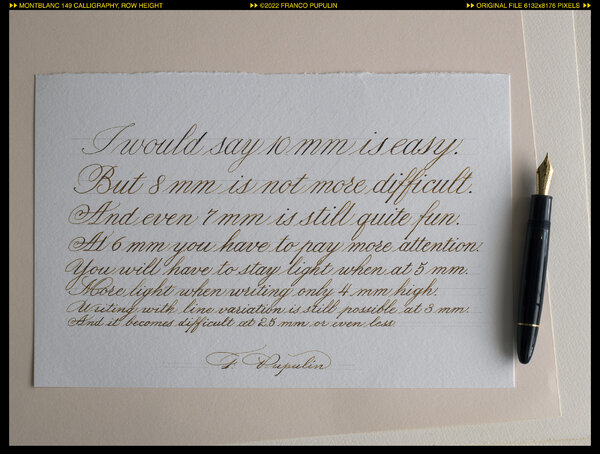 MONTBLANC 149 CALLIGRAPHY, ROW HEIGHT
©2022 FRANCO PUPULIN
ORIGINAL FILE 6132x8176 PIXELS
I would say 10 mm is easy.
But 8 mm is not more difficult.
And even 7 mm is still quite fun.
At 6 mm you have to pay more attention.
You will have to stay light when at 5 mm.
More light when writing only 4 mm high.
Writing with line variation is still possible at 3 mm.
And it becomes difficult at 2.5 mm or even less
F. Pupulin